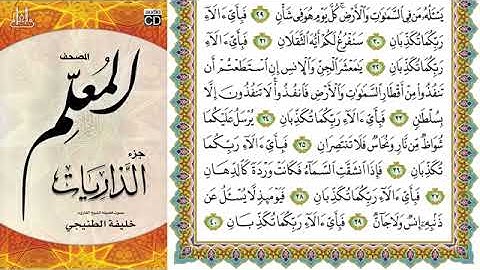 audio
CD
المصحف
المعلم
جزء
الذاريات
بصوت فضيلة الشيخ القارئ
خليفة الطنيجي
يَسْـَٔلُهُۥ مَن فِى ٱلسَّمَـٰوَٰتِ وَٱلْأَرْضِ ۚ كُلَّ يَوْمٍ هُوَ فِى شَأْنٍ ٢٩ فَبِأَىِّ ءَالَآءِ
رَبِّكُمَا تُكَذِّبَانِ ٣٠ سَنَفْرُغُ لَكُمْ أَيُّهَ ٱلثَّقَلَانِ ٣١ فَبِأَىِّ ءَالَآءِ
رَبِّكُمَا تُكَذِّبَانِ ٣٢ يَـٰمَعْشَرَ ٱلْجِنِّ وَٱلْإِنسِ إِنِ ٱسْتَطَعْتُمْ أَن
تَنفُذُوا۟ مِنْ أَقْطَارِ ٱلسَّمَـٰوَٰتِ وَٱلْأَرْضِ فَٱنفُذُوا۟ ۚ لَا تَنفُذُونَ إِلَّا
بِسُلْطَـٰنٍ ٣٣ فَبِأَىِّ ءَالَآءِ رَبِّكُمَا تُكَذِّبَانِ ٣٤ يُرْسَلُ عَلَيْكُمَا
شُوَاظٌ مِّن نَّارٍ وَنُحَاسٌ فَلَا تَنتَصِرَانِ ٣٥ فَبِأَىِّ ءَالَآءِ رَبِّكُمَا
تُكَذِّبَانِ ٣٦ فَإِذَا ٱنشَقَّتِ ٱلسَّمَآءُ فَكَانَتْ وَرْدَةً كَٱلدِّهَانِ
٣٧ فَبِأَىِّ ءَالَآءِ رَبِّكُمَا تُكَذِّبَانِ ٣٨ فَيَوْمَئِذٍ لَّا يُسْـَٔلُ عَن
ذَنۢبِهِۦٓ إِنسٌ وَلَا جَآنٌّ ٣٩ فَبِأَىِّ ءَالَآءِ رَبِّكُمَا تُكَذِّبَانِ ٤٠